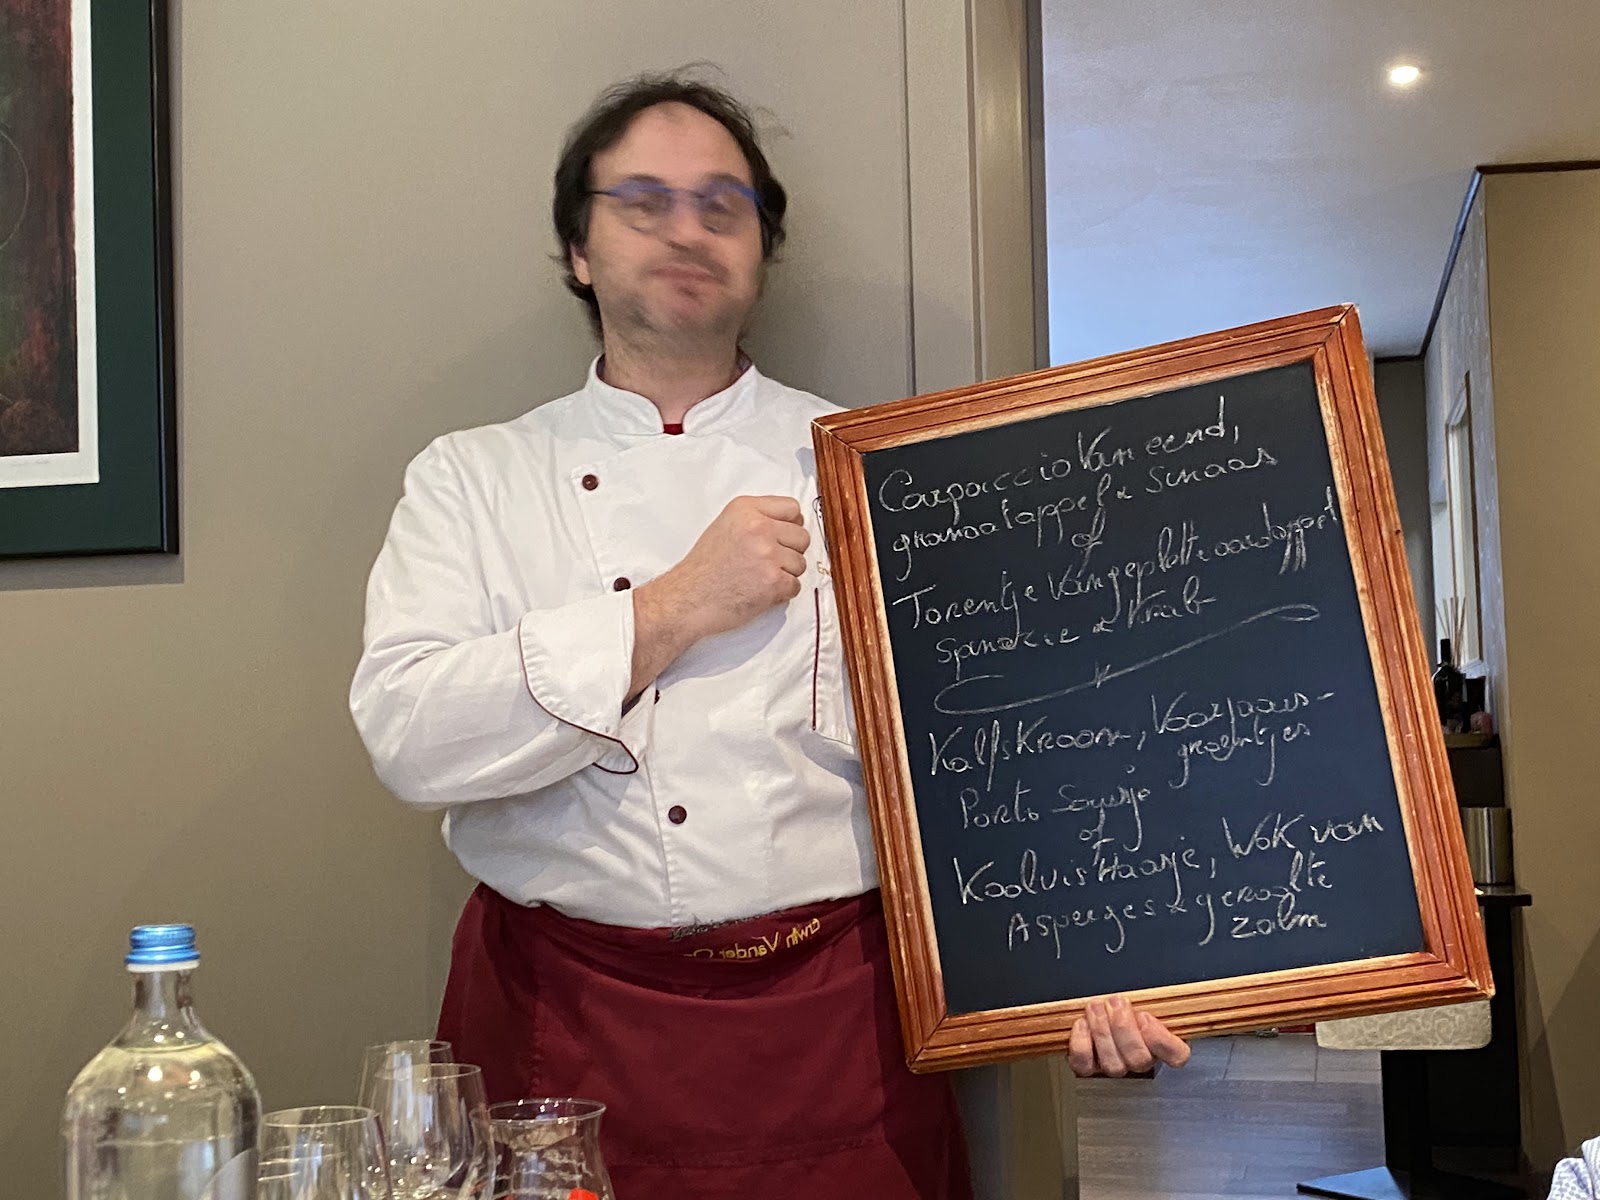 Carpaccio Van eend,
granaatappel & Sinaas
of
Torentje Van geplette aardappel
Spinazie & Krab
Kalfskroon, Voorjaars-
groentjes
Porto Sausje
of
Koolvishaasje, Wok van
Asperges & gerookte
zalm
Erwin Vander